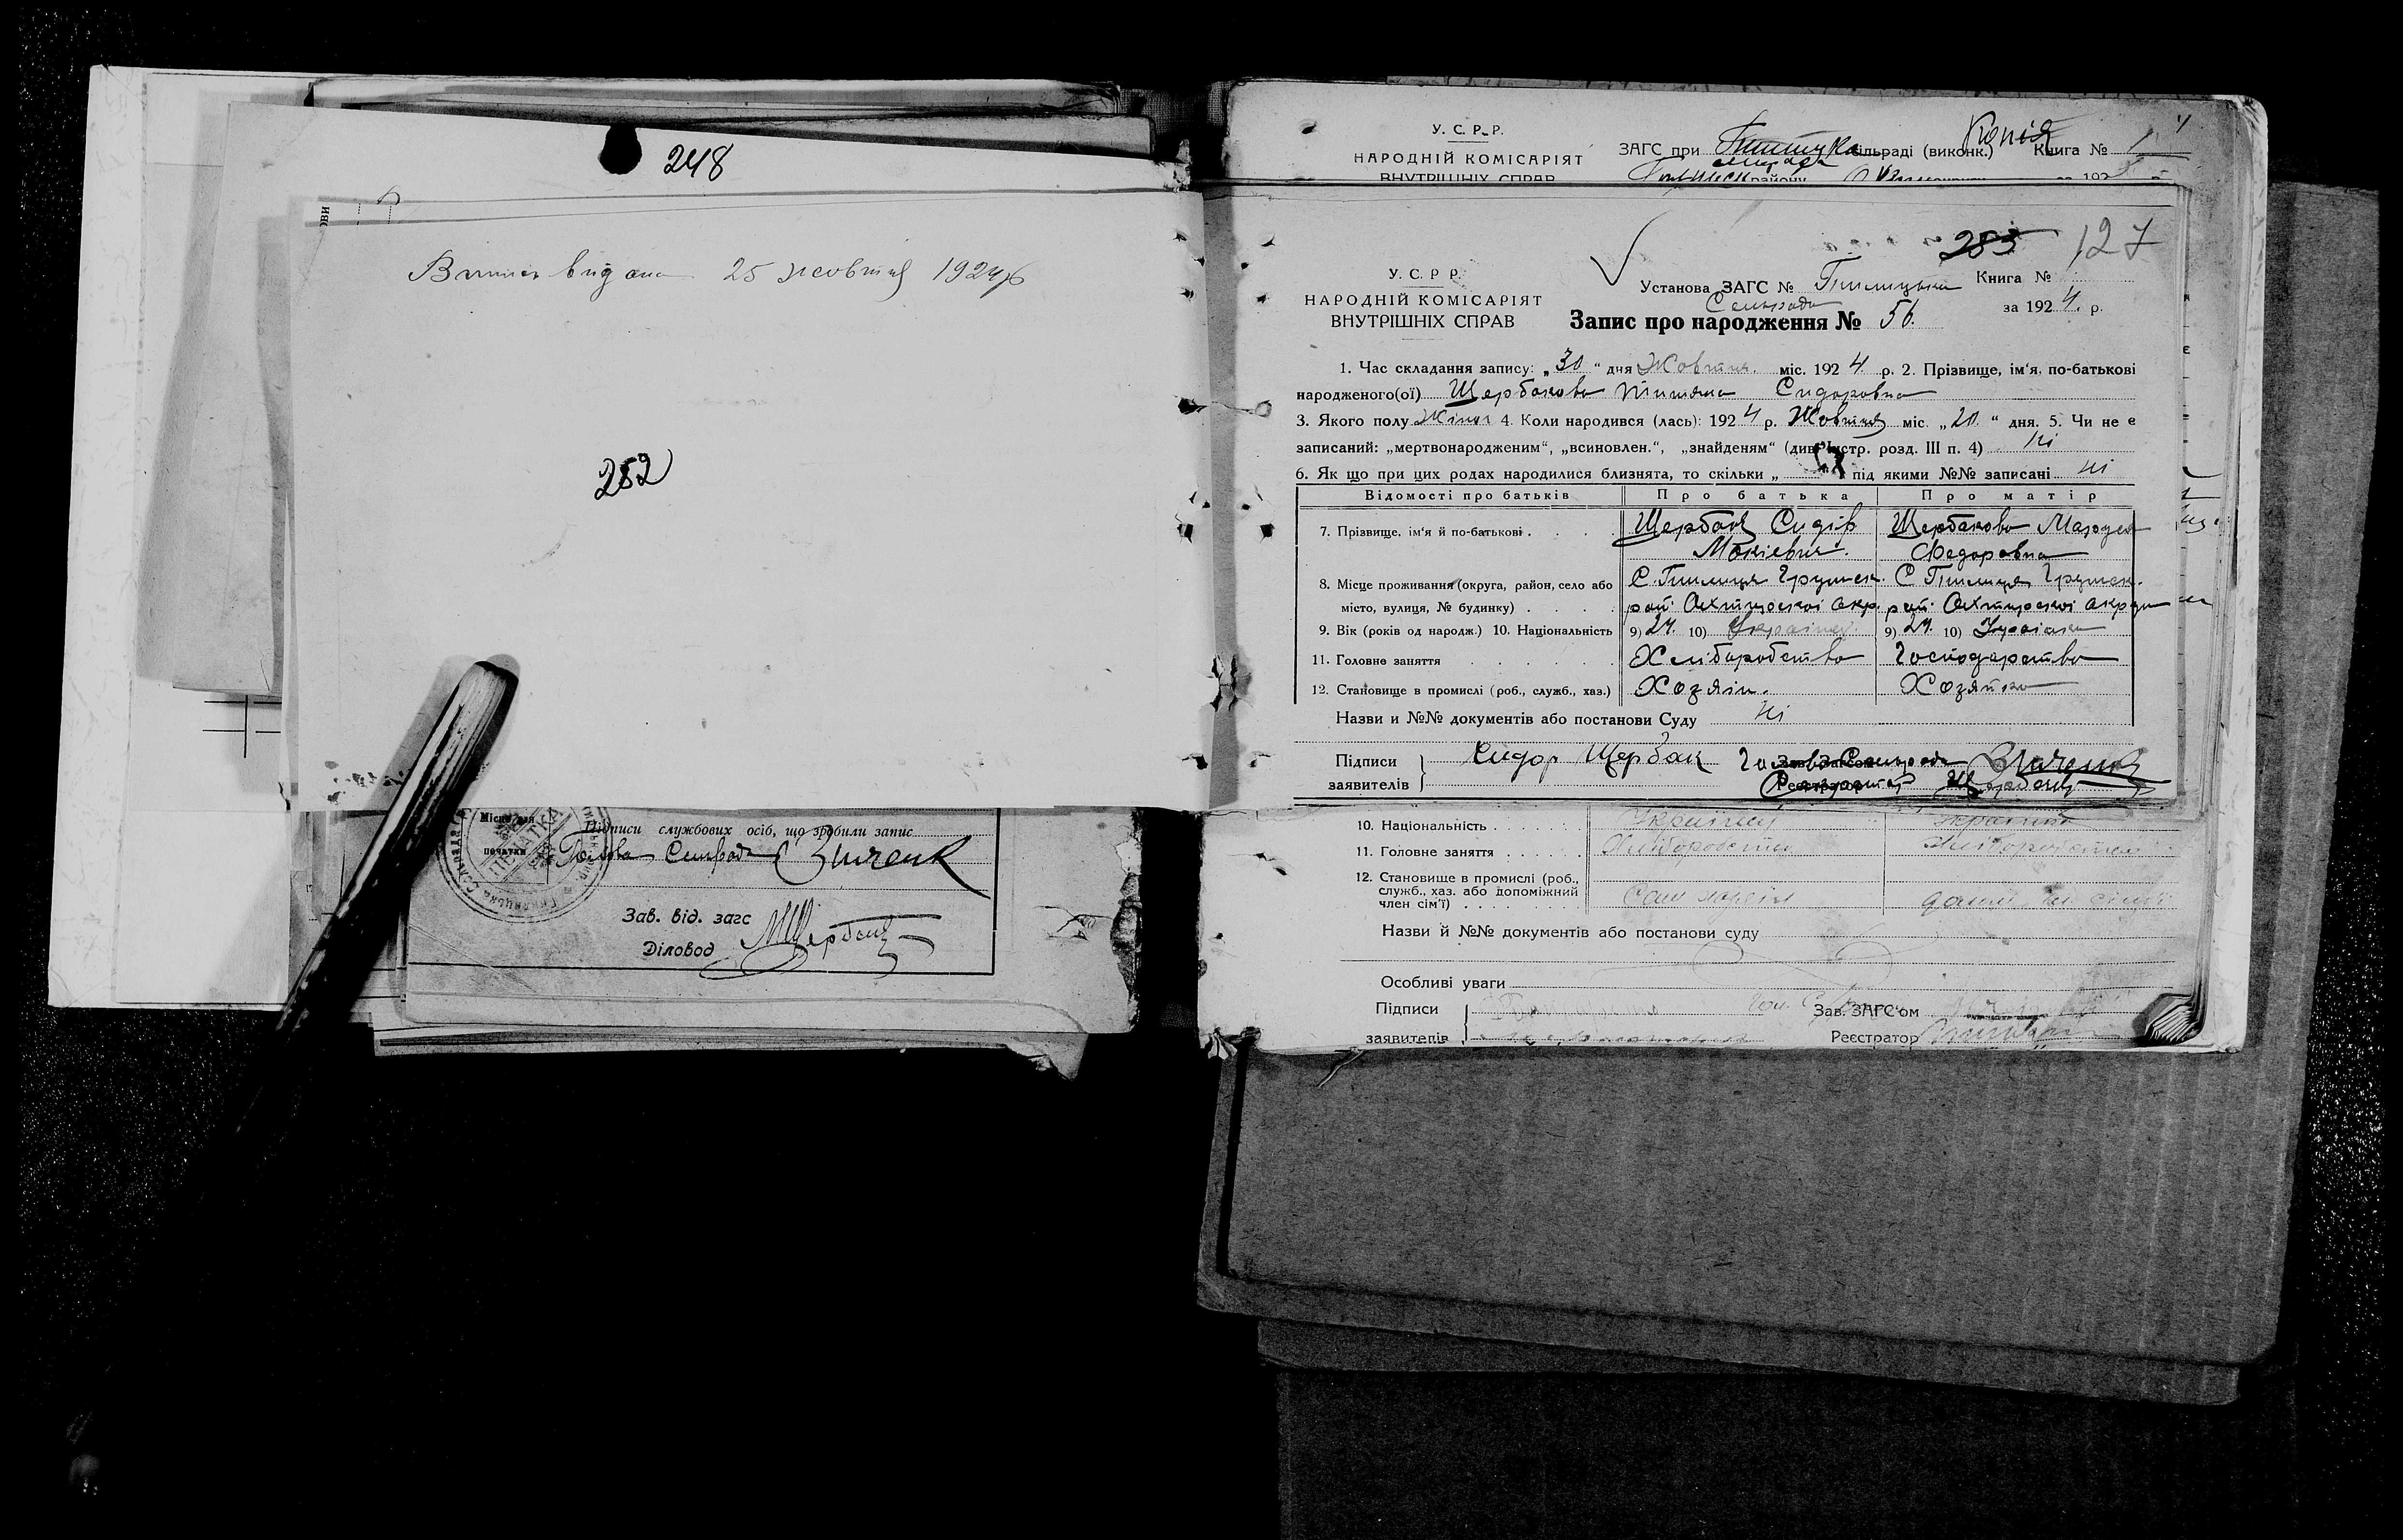 248
Випись видана 25 жовтня 1924 р
252
Місце для
печатки
ПЕЧАТКА
Підписи службових осіб, що зробили запис
Голова Сельради Зинченк
Зав. від. загс
Діловод
МЩербак
Копія
У. С. Р. Р.
НАРОДНІЙ КОМІСАРІЯТ
ВНУТРІШНІХ СПРАВ
ЗАГС при сільраді (виконк.) Книга № 1
району за 192
283 127
У. С. Р Р.
НАРОДНІЙ КОМІСАРІЯТ
ВНУТРІШНІХ СПРАВ
Установа ЗАГС № Книга №
Сельрада
за 1924. р.
Запис про народження № 56.
1. Час складання запису: „30“ дня Жовтня. міс. 1924 р. 2. Прізвище, ім‘я, по-батькові
народженого(ої) Щербакова Титяна Сидоровна
3. Якого полу Жіноч 4. Коли народився (лась): 1924 р. Жовтня міс. „20.“ дня. 5. Чи не є
записаний: „мертвонародженим“, „всиновлен.“, „знайденям“ (див. Інстр. розд. III п. 4) Ні
6. Як що при цих родах народилися близнята, то скільки „ під якими №№ записані ні
Відомості про батьків Про батька Про матір
7. Прізвище, ім‘я й по-батькові Щербак Сидір Щербакова
Мокієвич. Федоровна
8. Місце проживання (округа, район, село або С. Грунськ. С Грунськ.
місто, вулиця, № будинку) рай. Охтирської окр. рай. Охтирської округи
9. Вік (років од народж.) 10. Національність 9) 24. 10) Українец 9) 24. 10) Українка
11. Головне заняття Хліборобство Господарство
12. Становище в промислі (роб., служб., хаз.) Хозяін. Хозяйка
Назви и №№ документів або постанови Суду Ні
Підписи
заявителів
Сидор Щербак Голова Сельради Зинченк
Секретарь Щербак
10. Національність Українец Українка
11. Головне заняття Хліборобство
12. Становище в промислі (роб.,
служб., хаз. або допоміжний
член сім‘ї)
Назви й №№ документів або постанови суду
Особливі уваги
Підписи Зав. ЗАГС‘ом
заявителів Реєстратор